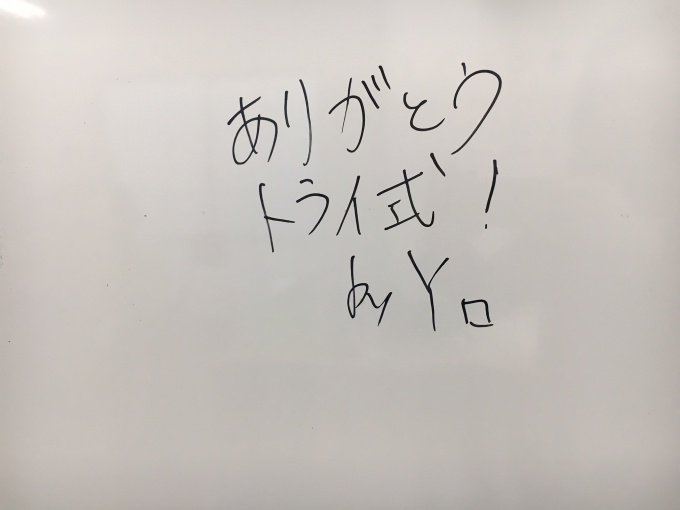 ありがとう
トライ式!
by Yロ